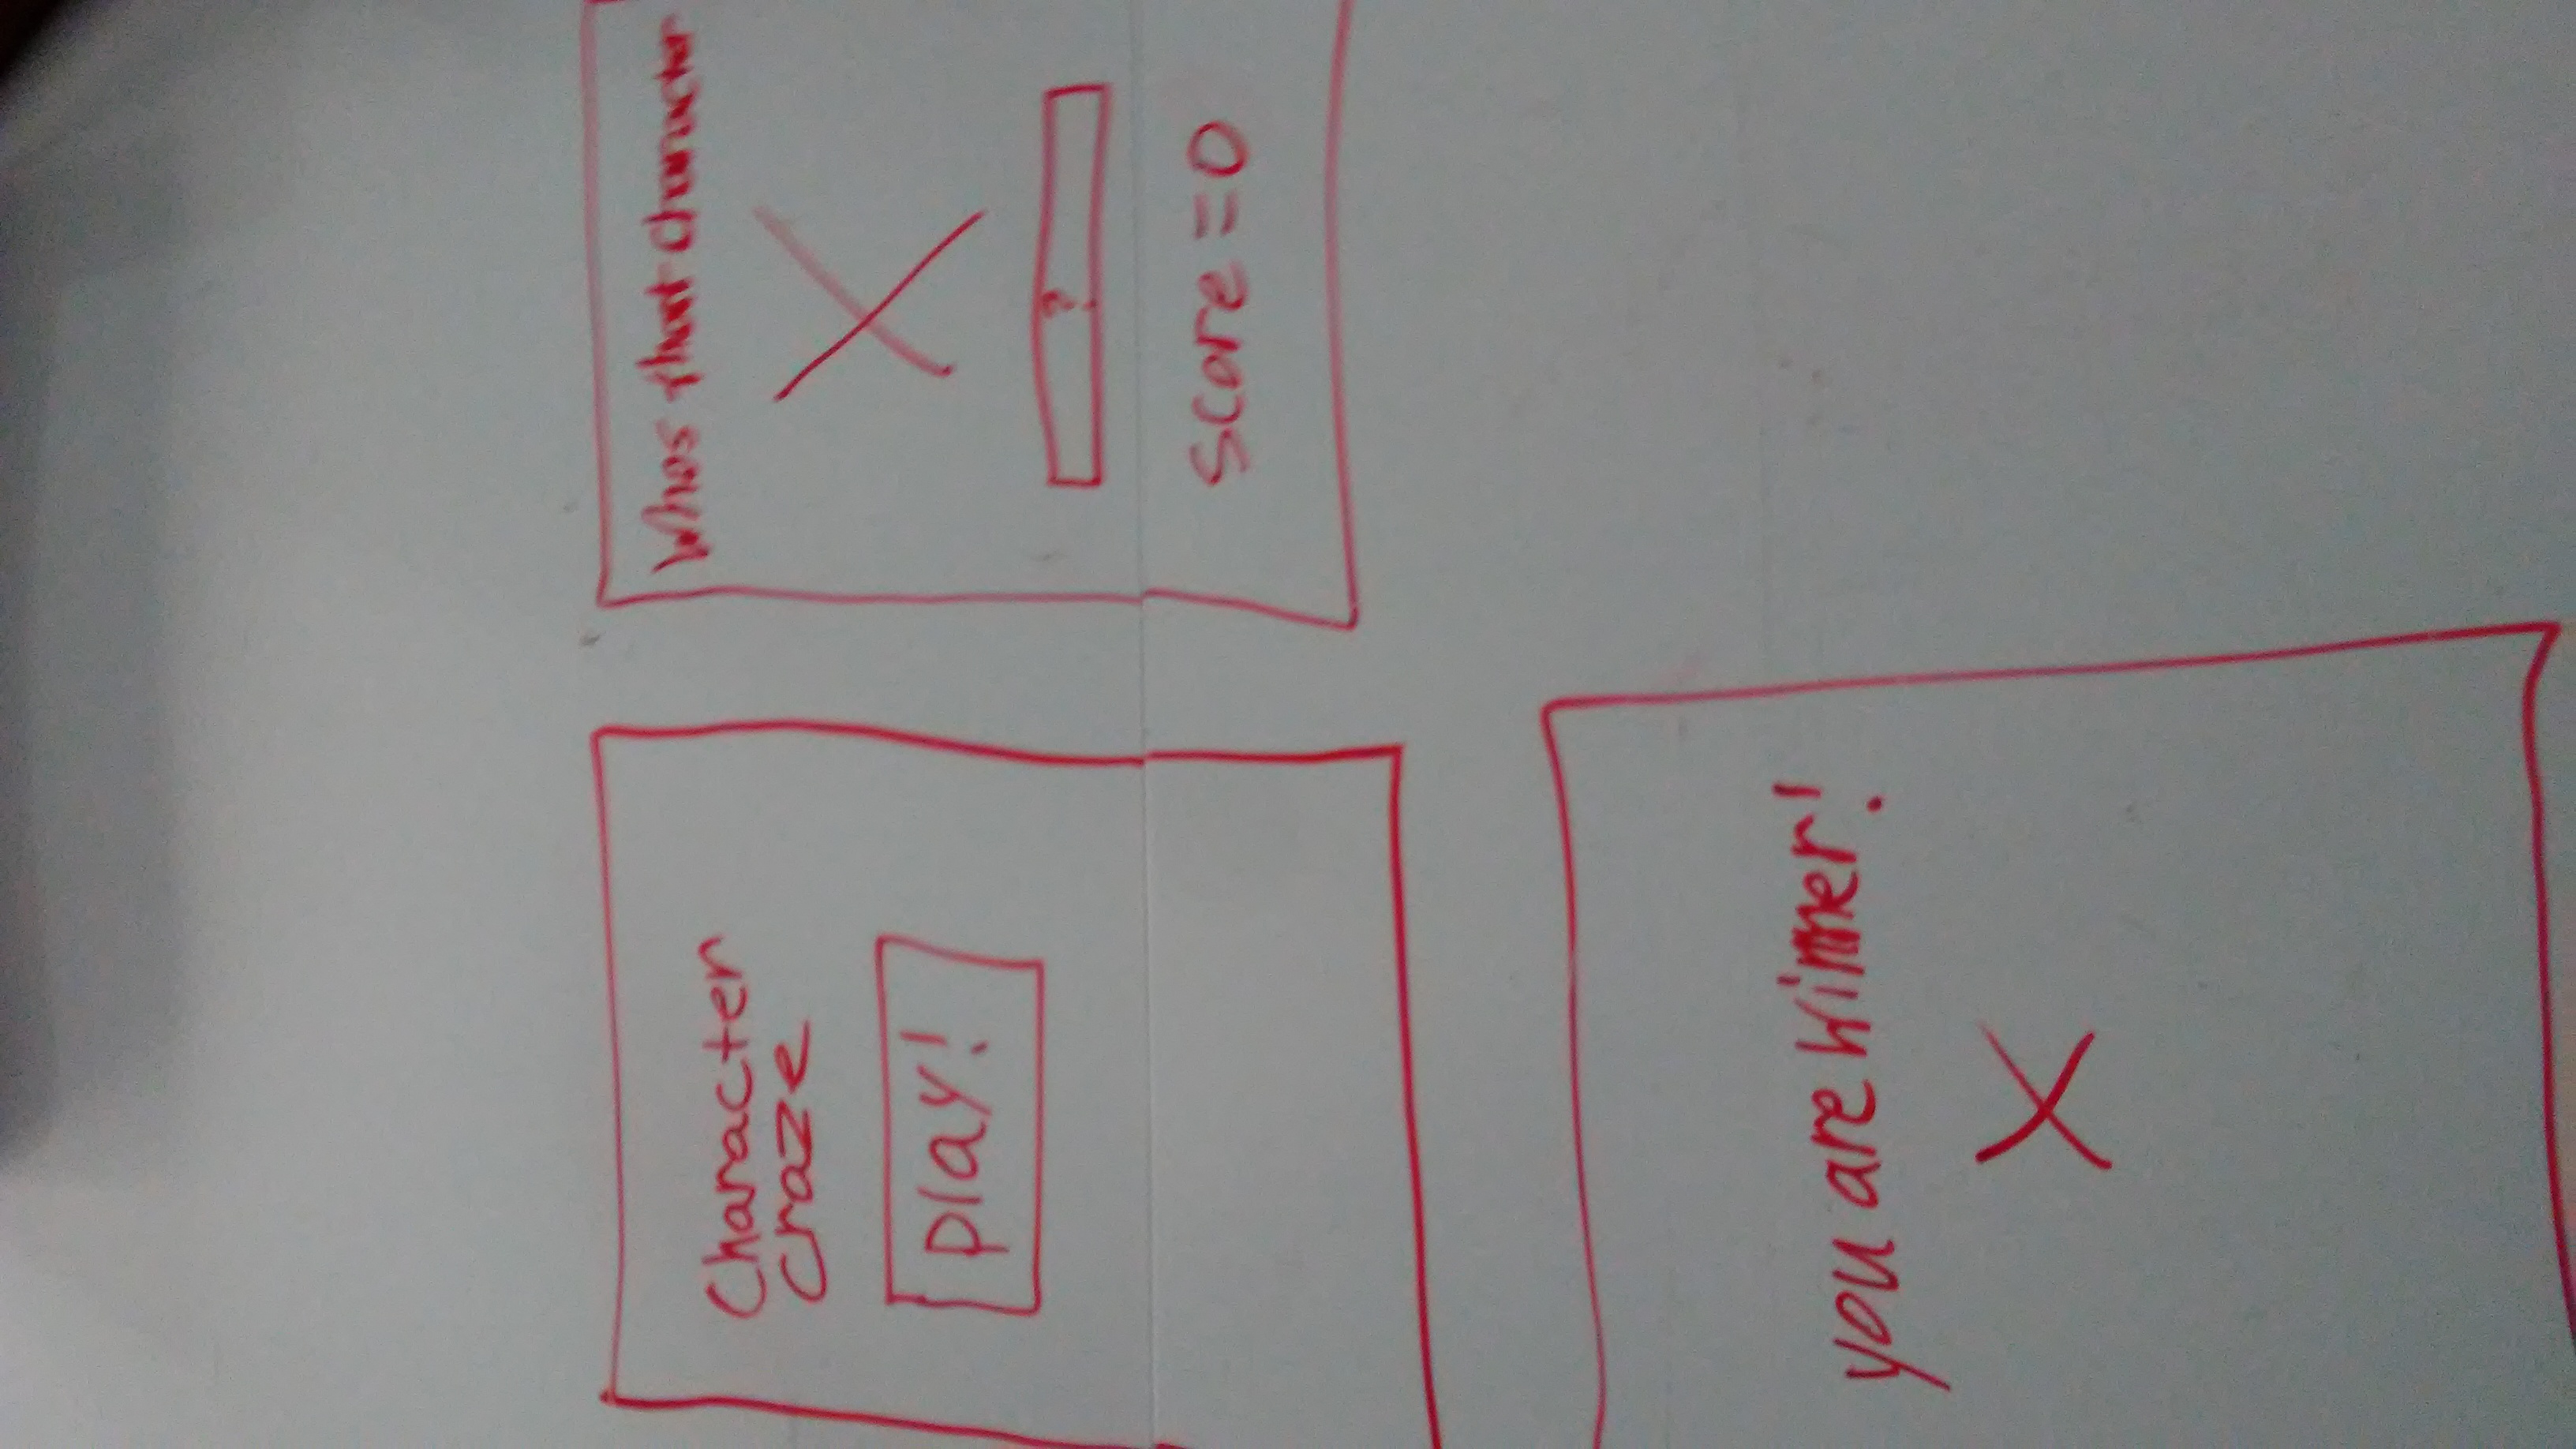 Character
craze
play!
Whos that character
?
score = 0
you are winner!